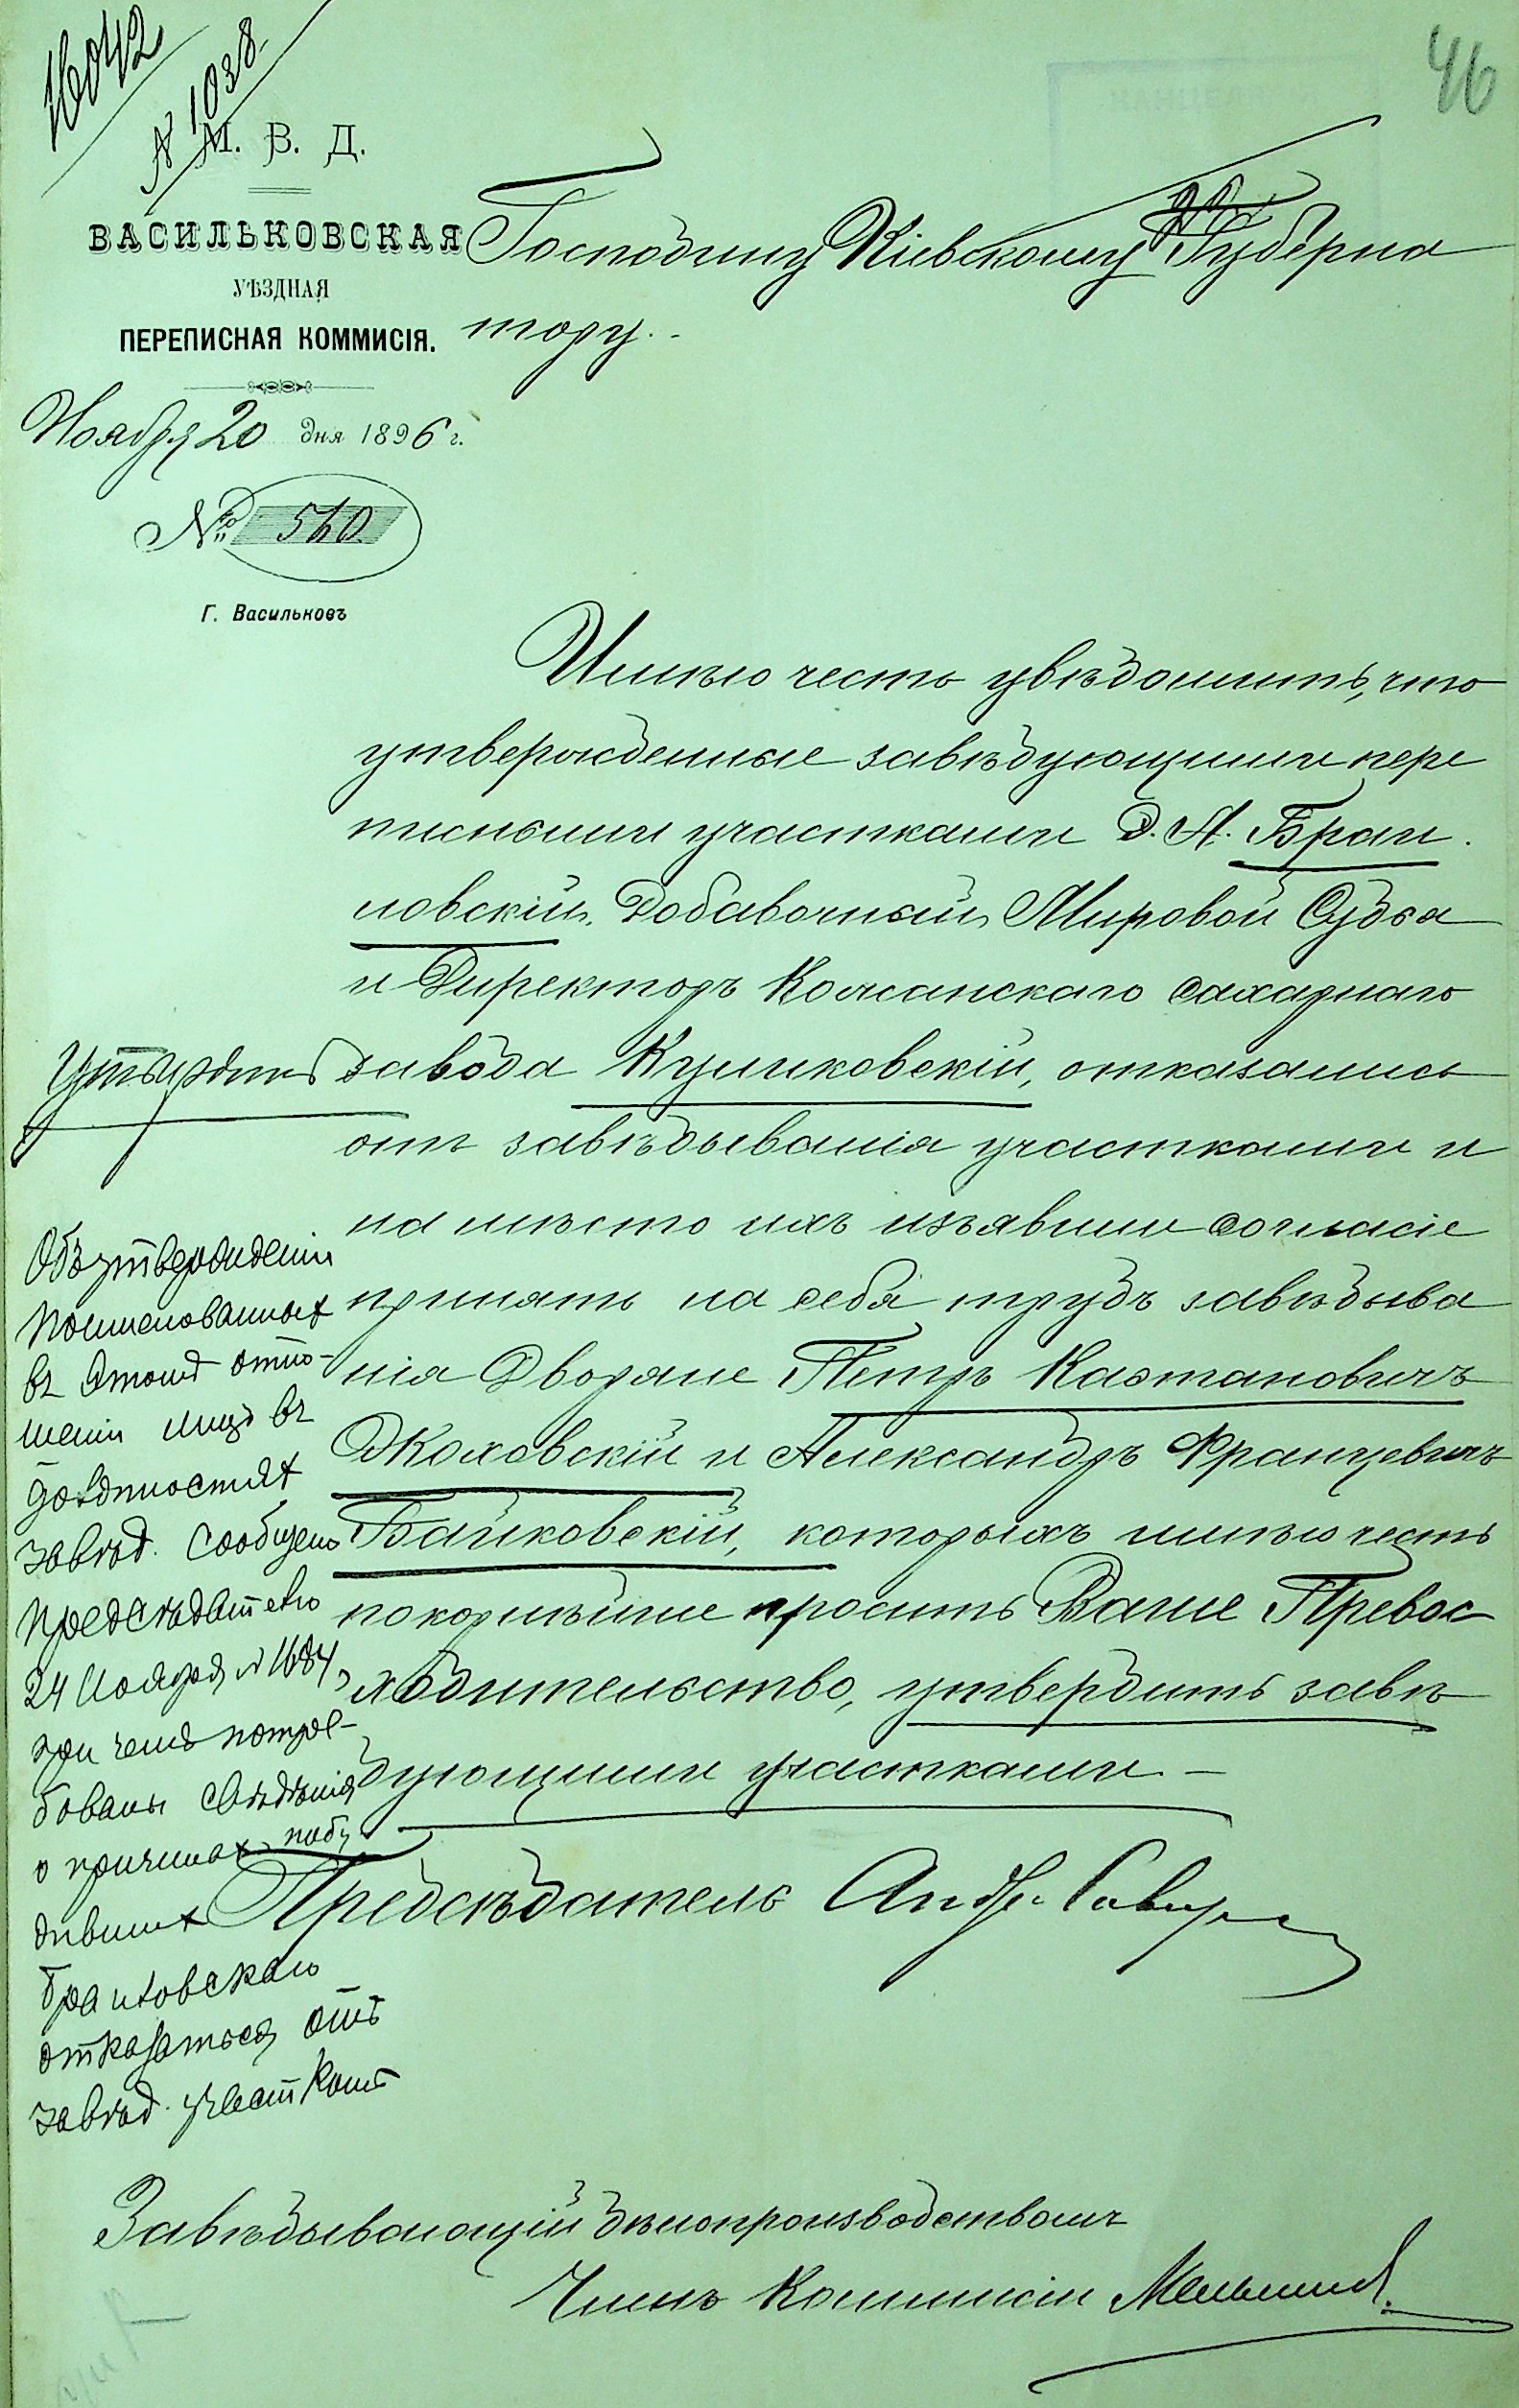 16042
№ 1038
46
М. В. Д.
ВАСИЛЬКОВСКАЯ
УѢЗДНАЯ
ПЕРЕПИСНАЯ КОММИСІЯ.
Ноября 20 дня 1896 г.
№ 560
Г. Васильковъ
Господину Кіевскому Губерна
тору.
Имѣю честь увѣдомить, что
утвержденные завѣдующими пере
писными участками Д. А. Браи
ловскій, Добавочный Мировой Судья
и Директоръ Кожанскаго сахарнаго
завода Куликовскій, отказались
отъ завѣдыванія участками и
на мѣсто ихъ изъявили согласіе
принять на себя трудъ завѣдыва
нія Дворяне Петръ Каэтановичъ
Жоховскій и Александръ Францевичъ
Байковскій, которыхъ имѣю честь
покорнѣйше просить Ваше Превос
ходительство, утвердить завѣ
дующими участками. –
Предсѣдатель
Утвердить
Объ утвержденіи
поименованныхъ
въ этомъ отно-
шеніи лицъ въ
должностяхъ
завѣд. сообщено
предсѣдателю
24 Ноября № 1684,
при чемъ потре-
бованы свѣдѣнія
о причинахъ побу
дившихъ
Браиловскаго
отказаться отъ
завѣд. участкомъ
Завѣдывающій дѣлопроизводствомъ
Членъ Коммисіи